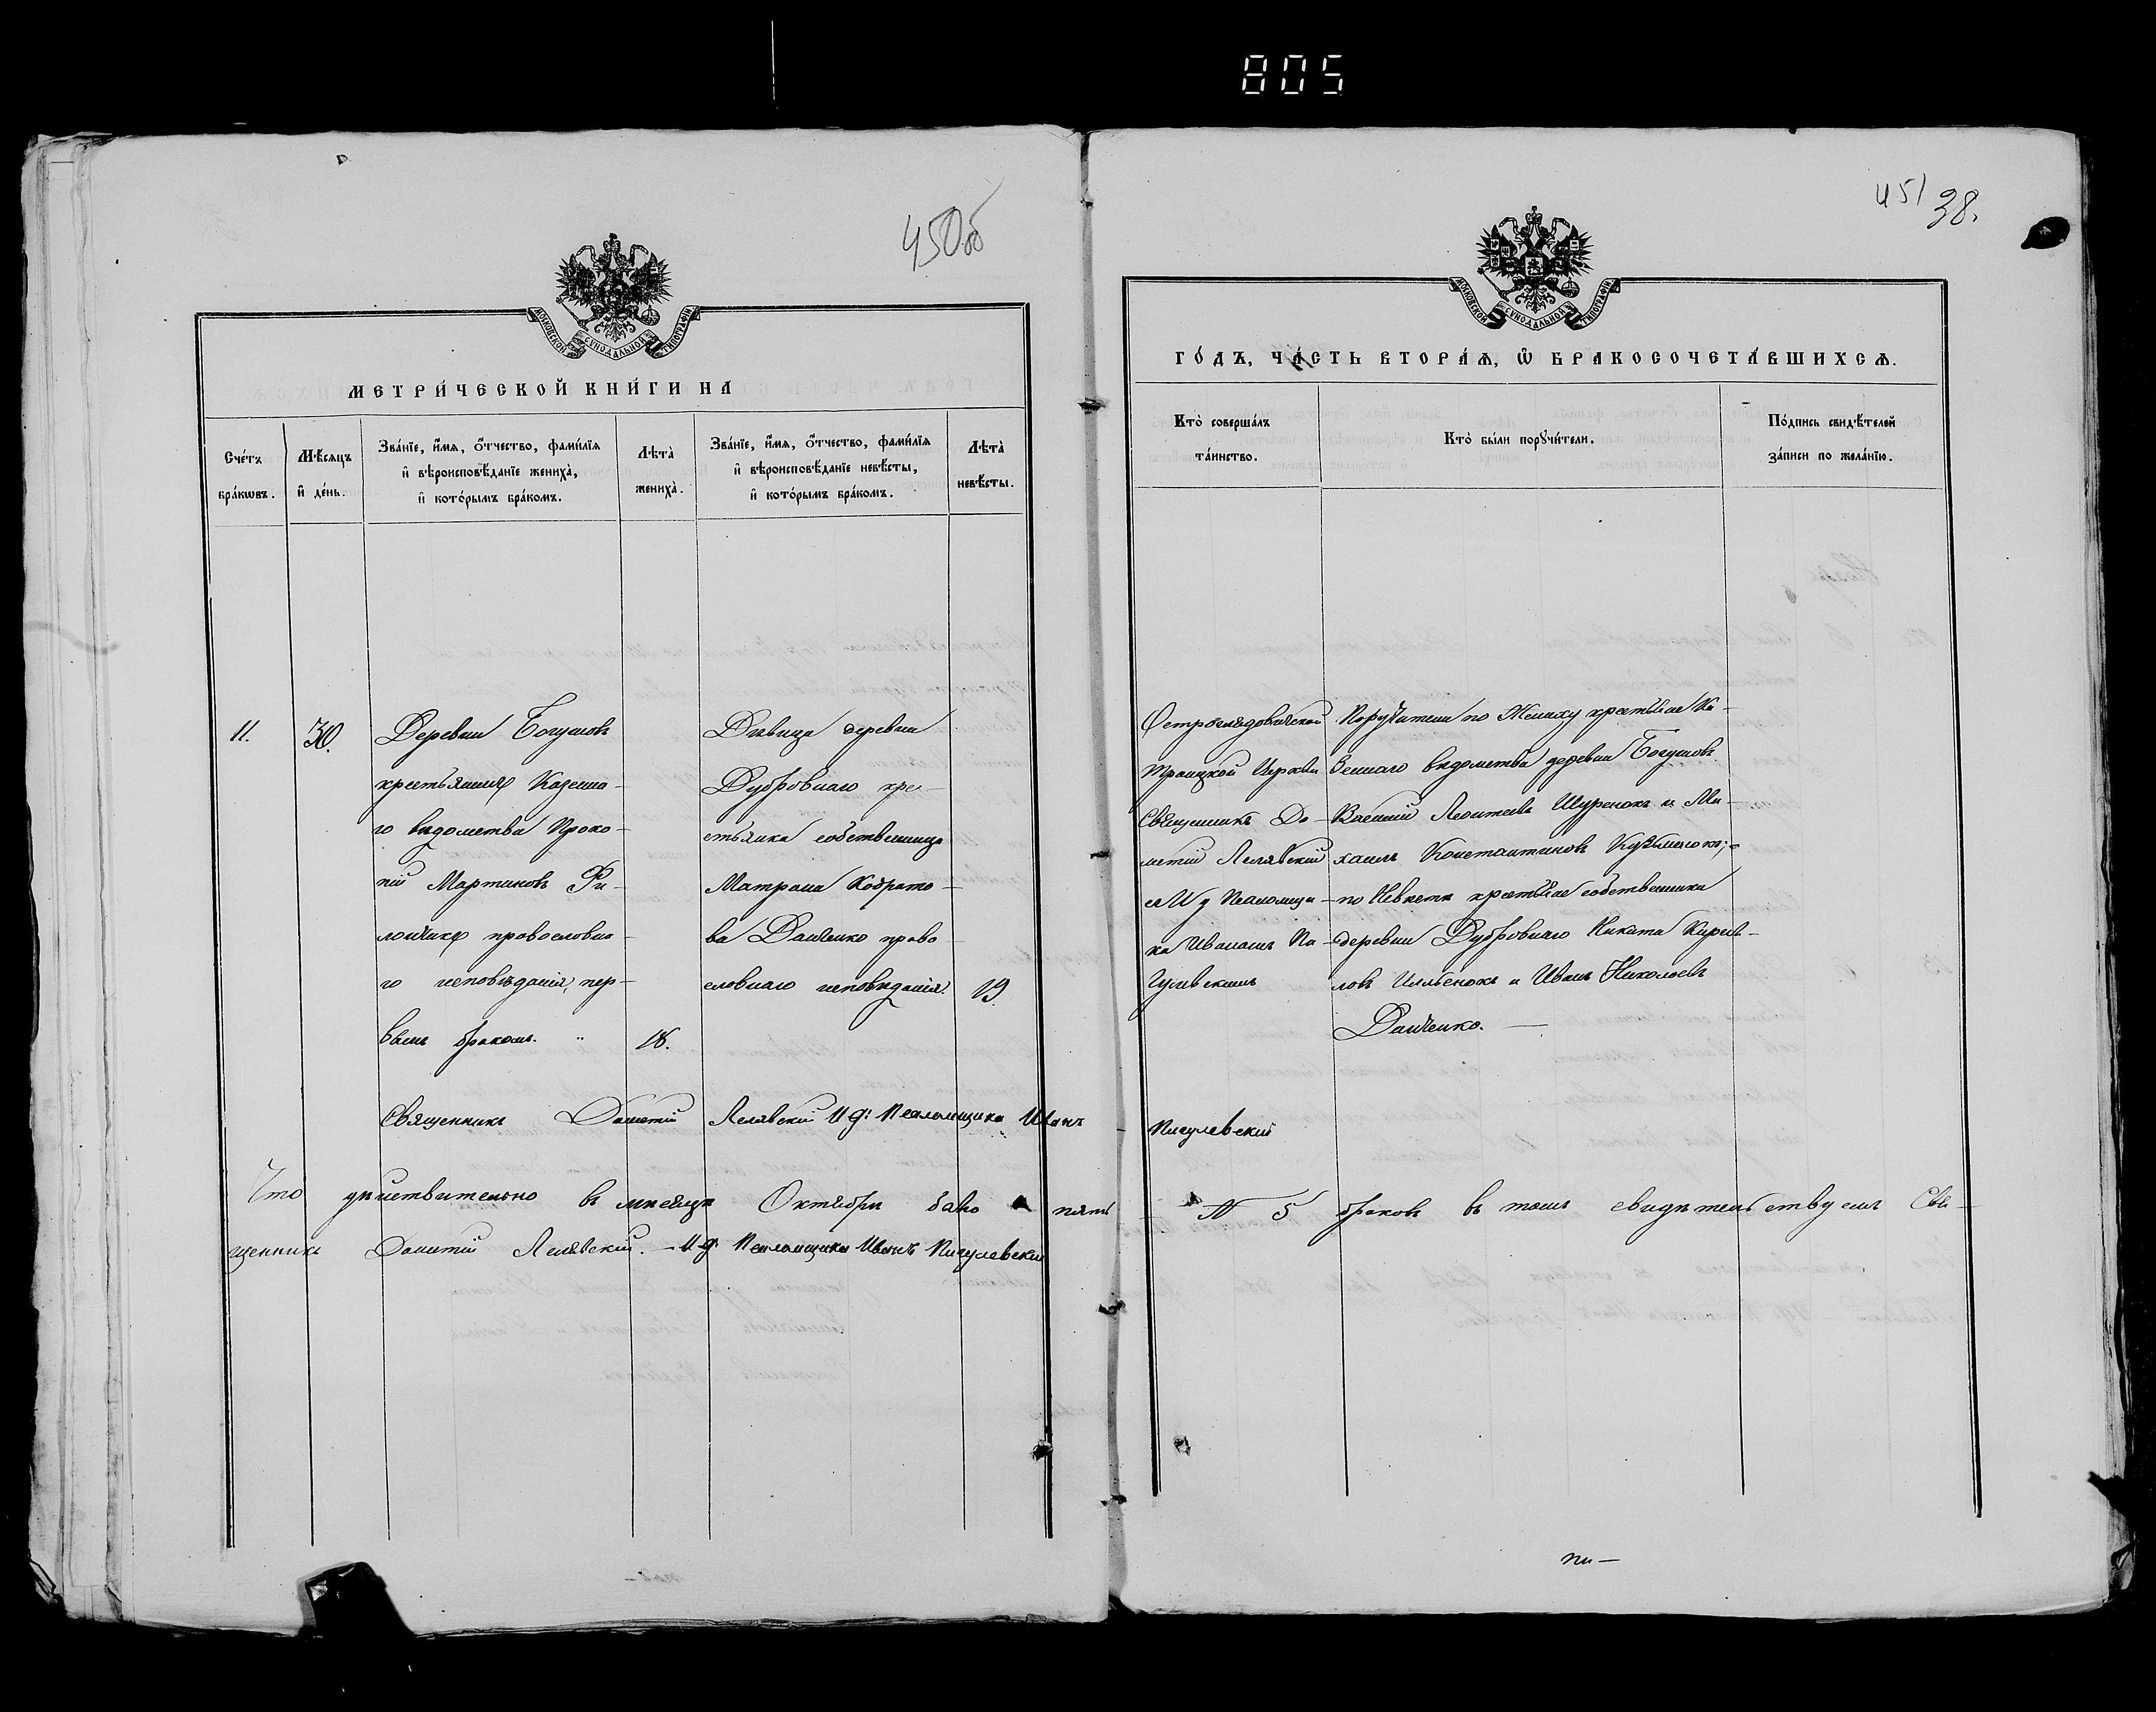 805
450об
451 38.
МОСКОВСКОЙ СѴНОДАЛЬНОЙ ТИПОГРАФІИ
МЕТРИ́ЧЕСКОЙ КНИ́ГИ НА
Сче́тъ бра́кѡвъ.
Мѣ́сяцъ и҆ де́нь.
Зва́нїе, и҆́мѧ, ѻ҆́тчество, фами́лїѧ
и҆ вѣроисповѣ́данїе женихà,
и҆ кото́рымъ бра́комъ.
Лѣтà
женихà.
Зва́нїе, и҆́мѧ, ѻ҆́тчество, фами́лїѧ
и҆ вѣроисповѣ́данїе невѣ́сты,
и҆ кото́рымъ бра́комъ.
Лѣтà
невѣ́сты.
11.
30.
Деревни Богушовъ
крестьянинъ Казенна-
го вѣдомства Проко-
пій Мартиновъ Фи-
лончикъ провословна-
го исповѣданія, пер-
вымъ бракомъ. "
18.
Дѣвица деревни
Дубровнаго кре-
стьянка собственница
Матрона Кодрато-
ва Данченко право
славнаго исповѣданія.
19.
Священникъ Дометій Лелявскій И. д. Псаломщика Иванъ
Что дѣйствительно въ мѣсяцѣ Октябрѣ было пять
щенникъ Дометій Лелявскій. - И. д. Псаломщика Иванъ Пигулевскій
МОСКОВСКОЙ СѴНОДАЛЬНОЙ ТИПОГРАФІИ
ГО́ДЪ, ЧА́СТЬ ВТОРА́Ѧ, Ѡ҆ БРАКОСОЧЕТА́ВШИХСѦ.
Кто̀ соверша́лъ
та́инство.
Кто̀ бы́ли порꙋчи́тели.
По́дпись свидѣ́телей
за́писи по жела́нїю.
Троицкой Церкви
Священникъ До-
метій Лелявскій
съ И д Псаломщи-
ка Иваномъ Пи-
гулевскимъ
Поручители по Жениху крестьяне Ка-
зеннаго вѣдомства деревни Богушовъ
Василій Леонтьевъ Шуренокъ и Ми-
хаилъ Константиновъ Кузьменокъ;
по Невѣстѣ крестьяне собственники
деревни Дубровнаго Никита Кирил-
ловъ Ильенокъ и Иванъ Николаевъ
Данченко.
Пигулевскій
№ 5 браковъ въ томъ свидѣтельствуемъ Свя-
пи-